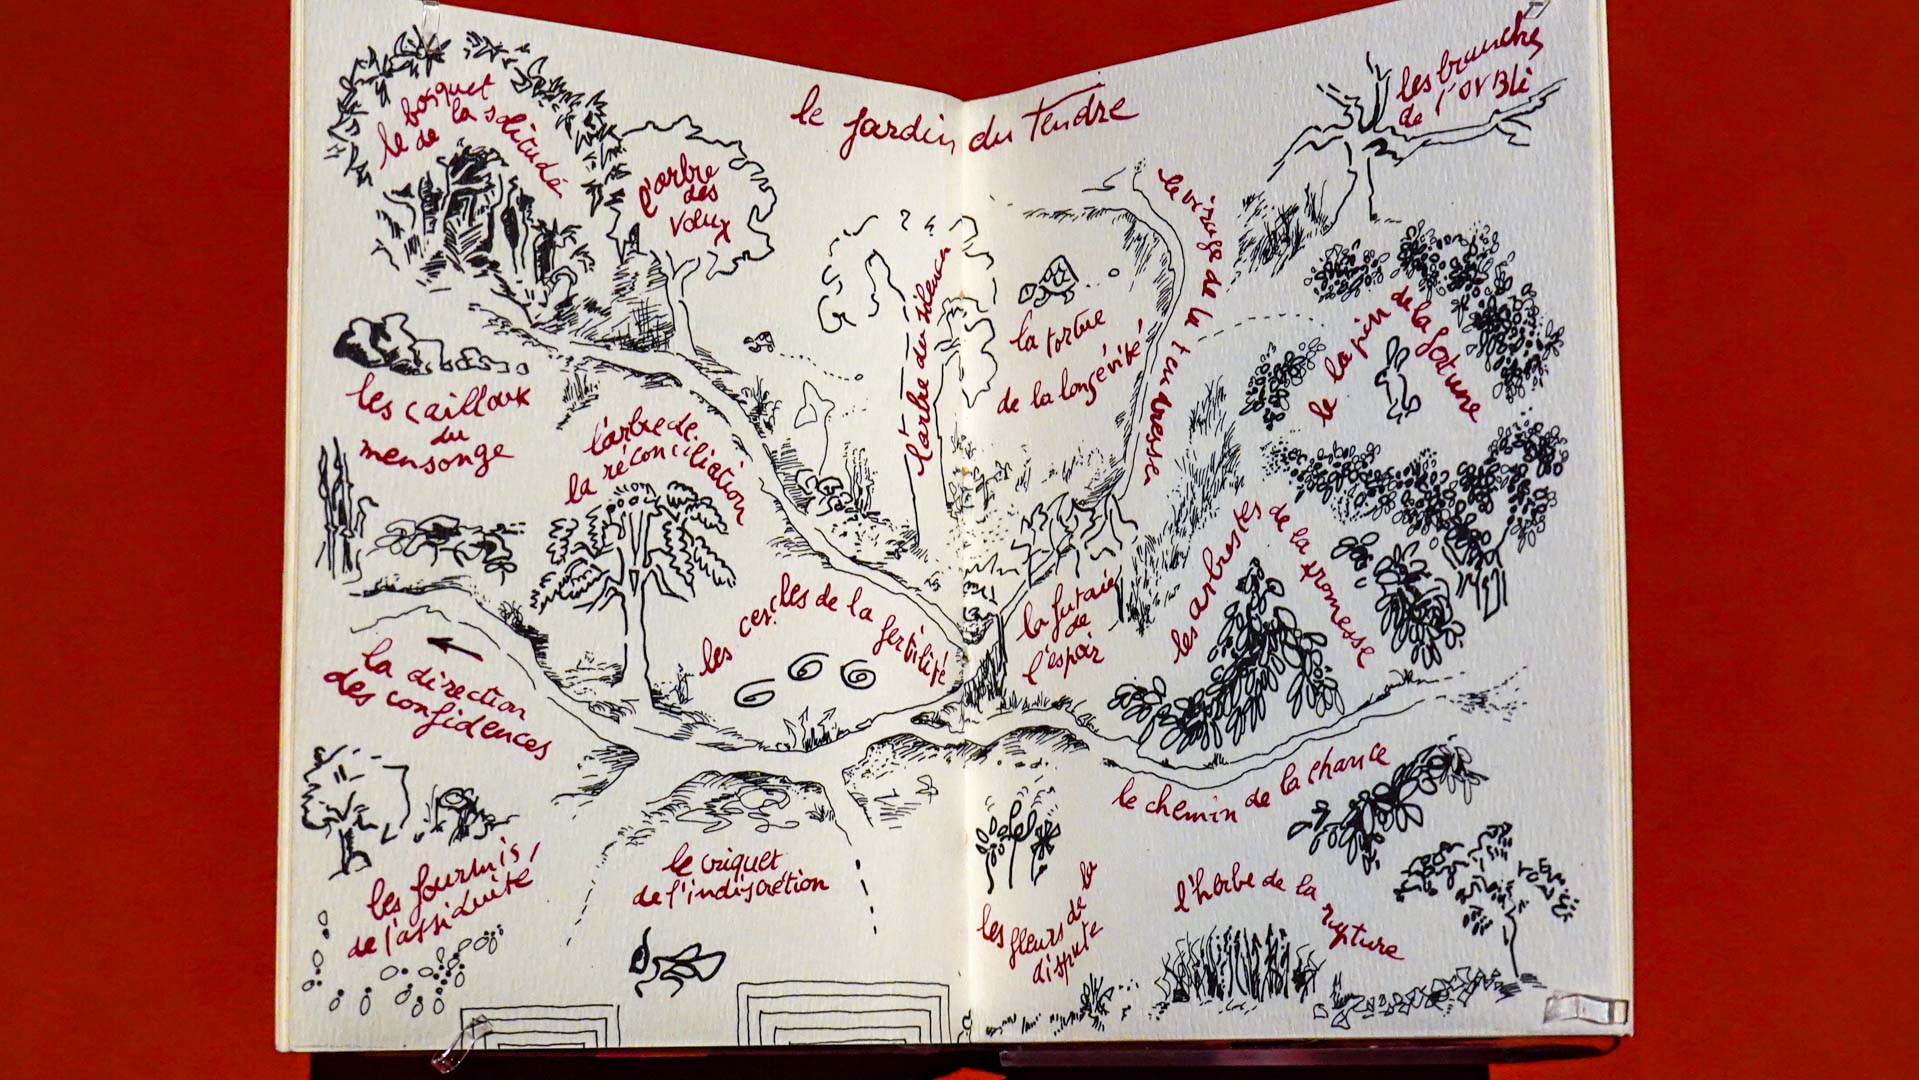 le jardin du Tendre
le bosquet
de la solitude
l'arbre
des
vœux
les branches
de l'OUBLi
le virage de la tendresse
l'arbre du silence
la tortue
de la longévité
le lapin de la fortune
les cailloux
du
mensonge
l'arbre de
la réconciliation
les cercles de la fertilité
la futaie
de
l'espoir
les arbustes de la promesse
la direction
des confidences
le chemin de la chance
les fourmis
de l'assiduité
le criquet
de l'indiscrétion
les fleurs de la
dispute
l'herbe de la rupture